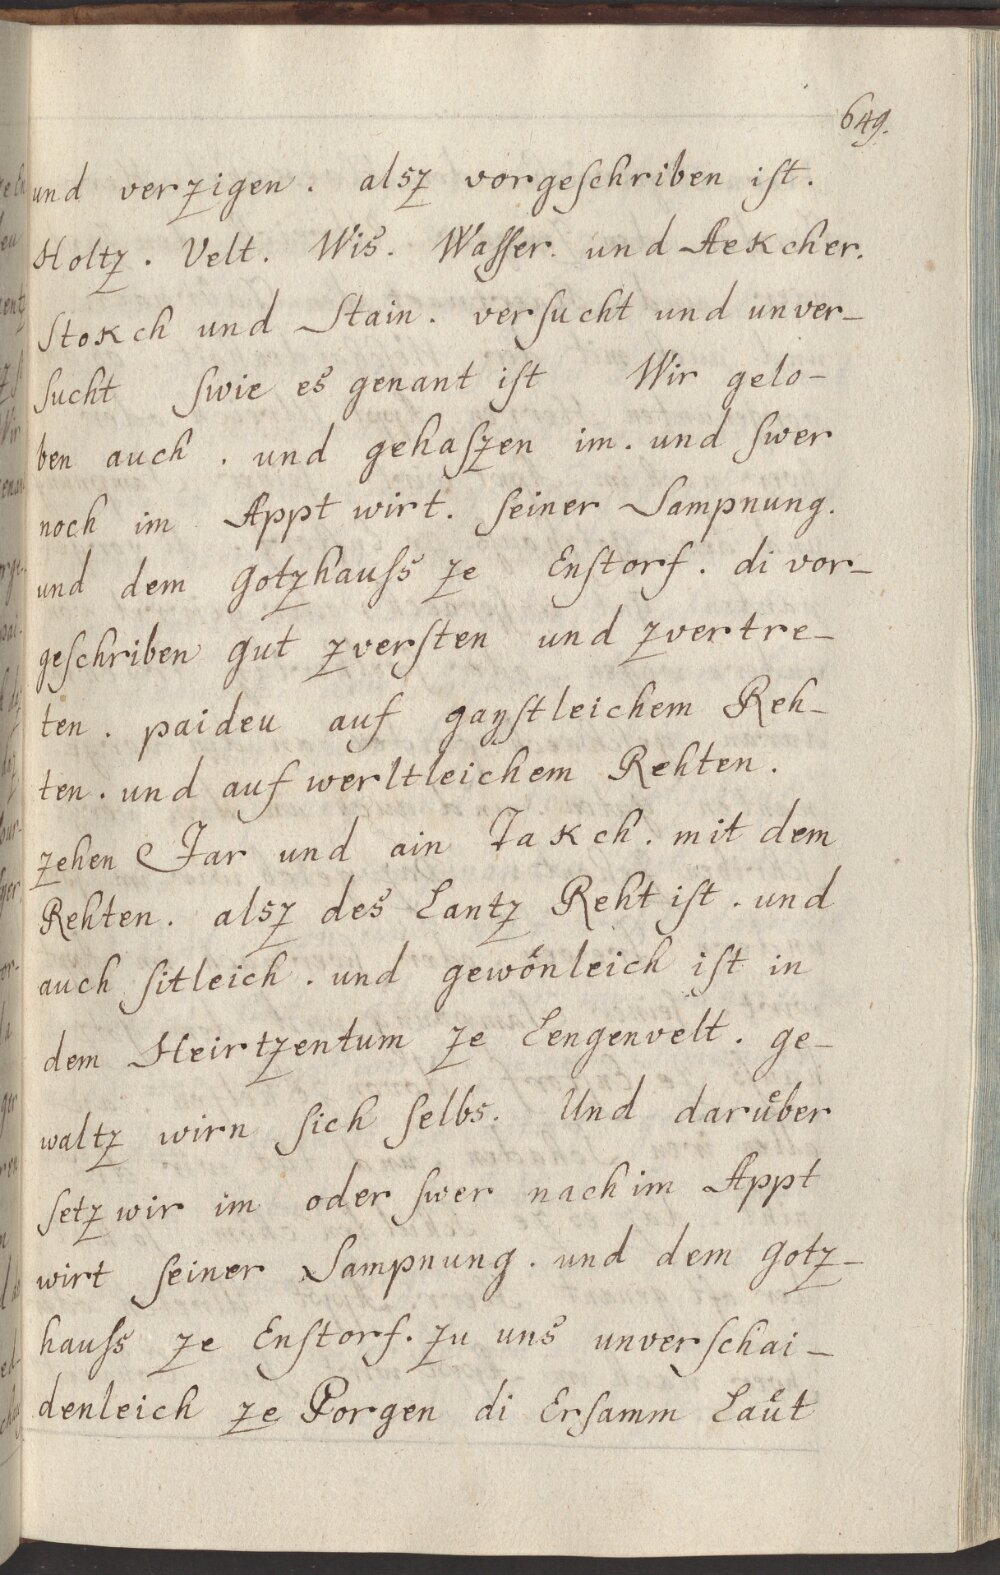 649.
und verzigen. alsz vorgeschriben ist.
Holtz. Velt. Wis. Wasser. und Aekcher.
Stokch und Stain. versucht und unver-
sucht swie es genant ist Wir gelo-
ben auch. und gehaszen im. und swer
noch im Appt wirt. seiner Sampnung.
und dem Gotzhauss ze Enstorf. di vor-
geschriben gut zversten und zvertre-
ten. paideu auf gaystleichem Reh-
ten. und auf werltleichem Rehten.
zehen Jar und ain Takch. mit dem
Rehten. alsz des Lantz Reht ist. und
auch sitleich. und gewoͤnleich ist in
dem Heirtzentum ze Lengenvelt. ge-
waltz wirn sich selbs. Und daruͤber
setz wir im oder swer nach im Appt
wirt seiner Sampnung. und dem Gotz-
hauss ze Enstorf. zu uns unverschai-
denleich ze Porgen di Ersamm Lauͤt